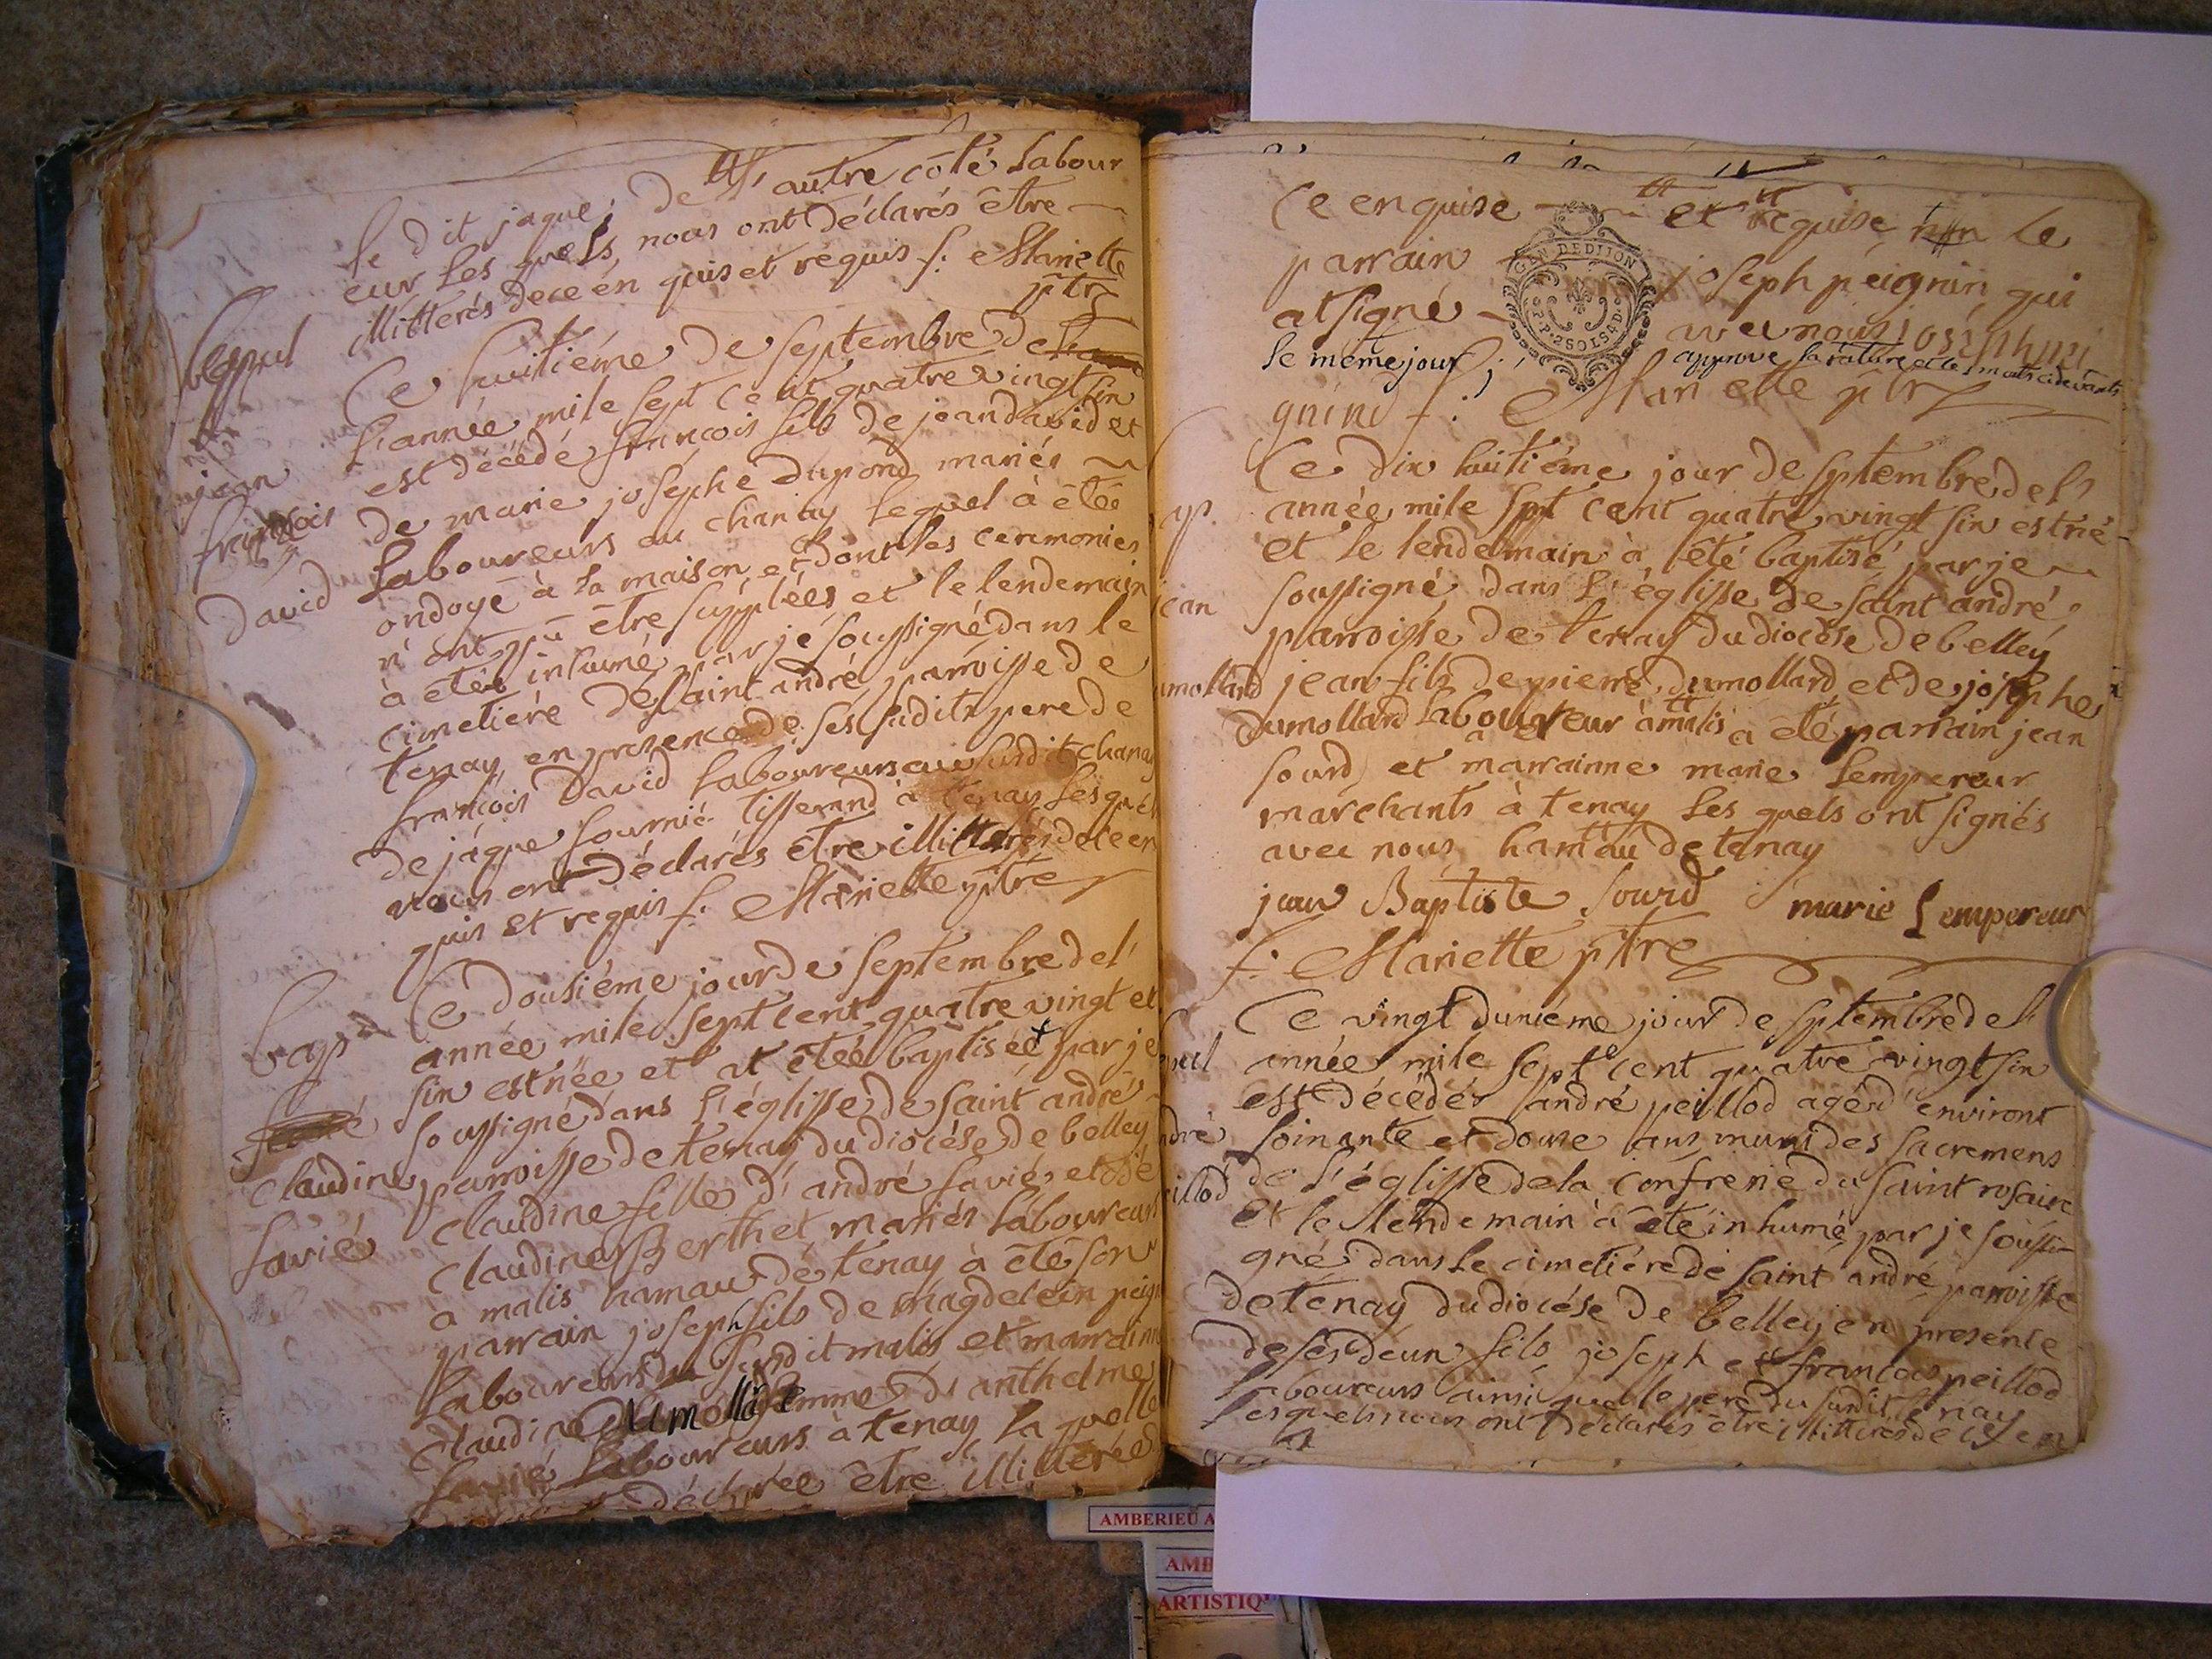 de l'autre côté labour
le dit jaque
eur les quels nous ont déclarés être
illitterés de ce én quis et réquis f. Mariette
ptre
Ce huitiéme de septembre de
l'année mile sept cent quatre vingt sin
est décédé françois fils de jean david et
jean
de marie josephe dupond mariés
françois
laboureurs au chanay lequel à été
david
ondoyé à la maison et dont les ceremonies
n'ont pu être supplées et le lendemain
à été inhumé par jé soussigné dans le
cimetiére de saint andré parroisse de
tenay en presence de ses sudits pere de
françois david laboureurs au susdit chanay
de jâque fournié tisserand à tenay lesquels
nous ont déclarés être illitterés de ce en
quis et requis f. Mariette ptre
bap
Ce dousiéme jour de septembre de l'
année mile sept cent quatre vingt et
sin est née et at étée baptisée par je
soussigné dans l'églisse de saint andré
claudine
parroisse de tenay du diocése de belley
savié
claudine fille d'andré savié et de
claudine Berthet mariés laboureurs
a malis hamau de tenay à été son
parrain joseph fils de magdelein peign
laboureurs du susdit malis et marrainne
claudine dumollard femme d'anthelme
savié laboureurs à tenay la quelle
déclarée être illitterée
Ce enquise et requise le
parrain joseph peignin qui
at signé avec nous josephpei
le meme jour approuve la rature et les mots cidevants
gnin f. Mariette ptre
Ce dix huitiéme jour de septembre de l'
ap.
année mile sept cent quatre vingt sin est né
et le lendemain à été baptisé par je
jean
soussigné dans l'églisse de saint andré
parroisse de tenay du diocèse de belley
umollard
jean fils de pierre dumollard et de josephe
dumollard laboureur à malis a été parrain jean
sourd et marrainne marie lempereur
marchants à tenay les quels ont signés
avec nous hamau de tenay
jean Baptiste sourd marie Lempereur
f. Mariette ptre
Ce vingt duniéme jour de septembre de l'
année mile sept cent quatre vingt sin
est décédés andré peillod agé d'environt
ndré
soixante et douse ans muni des sacremens
eillod
de l'églisse de la confrerie du saint rosaire
et le lendemain à été inhumé par je soussi
gné dans le cimetiére de saint andré parroisse
de tenay du diocése de belley en presence
de ses deux fils joseph et francois peillod
laboureurs ainsi que le pere du susdit tenay
lesquels nous ont déclarés être illitterés de ce en
GEN DE DIJON
AMBERIEU A
AMB
ARTISTIQ